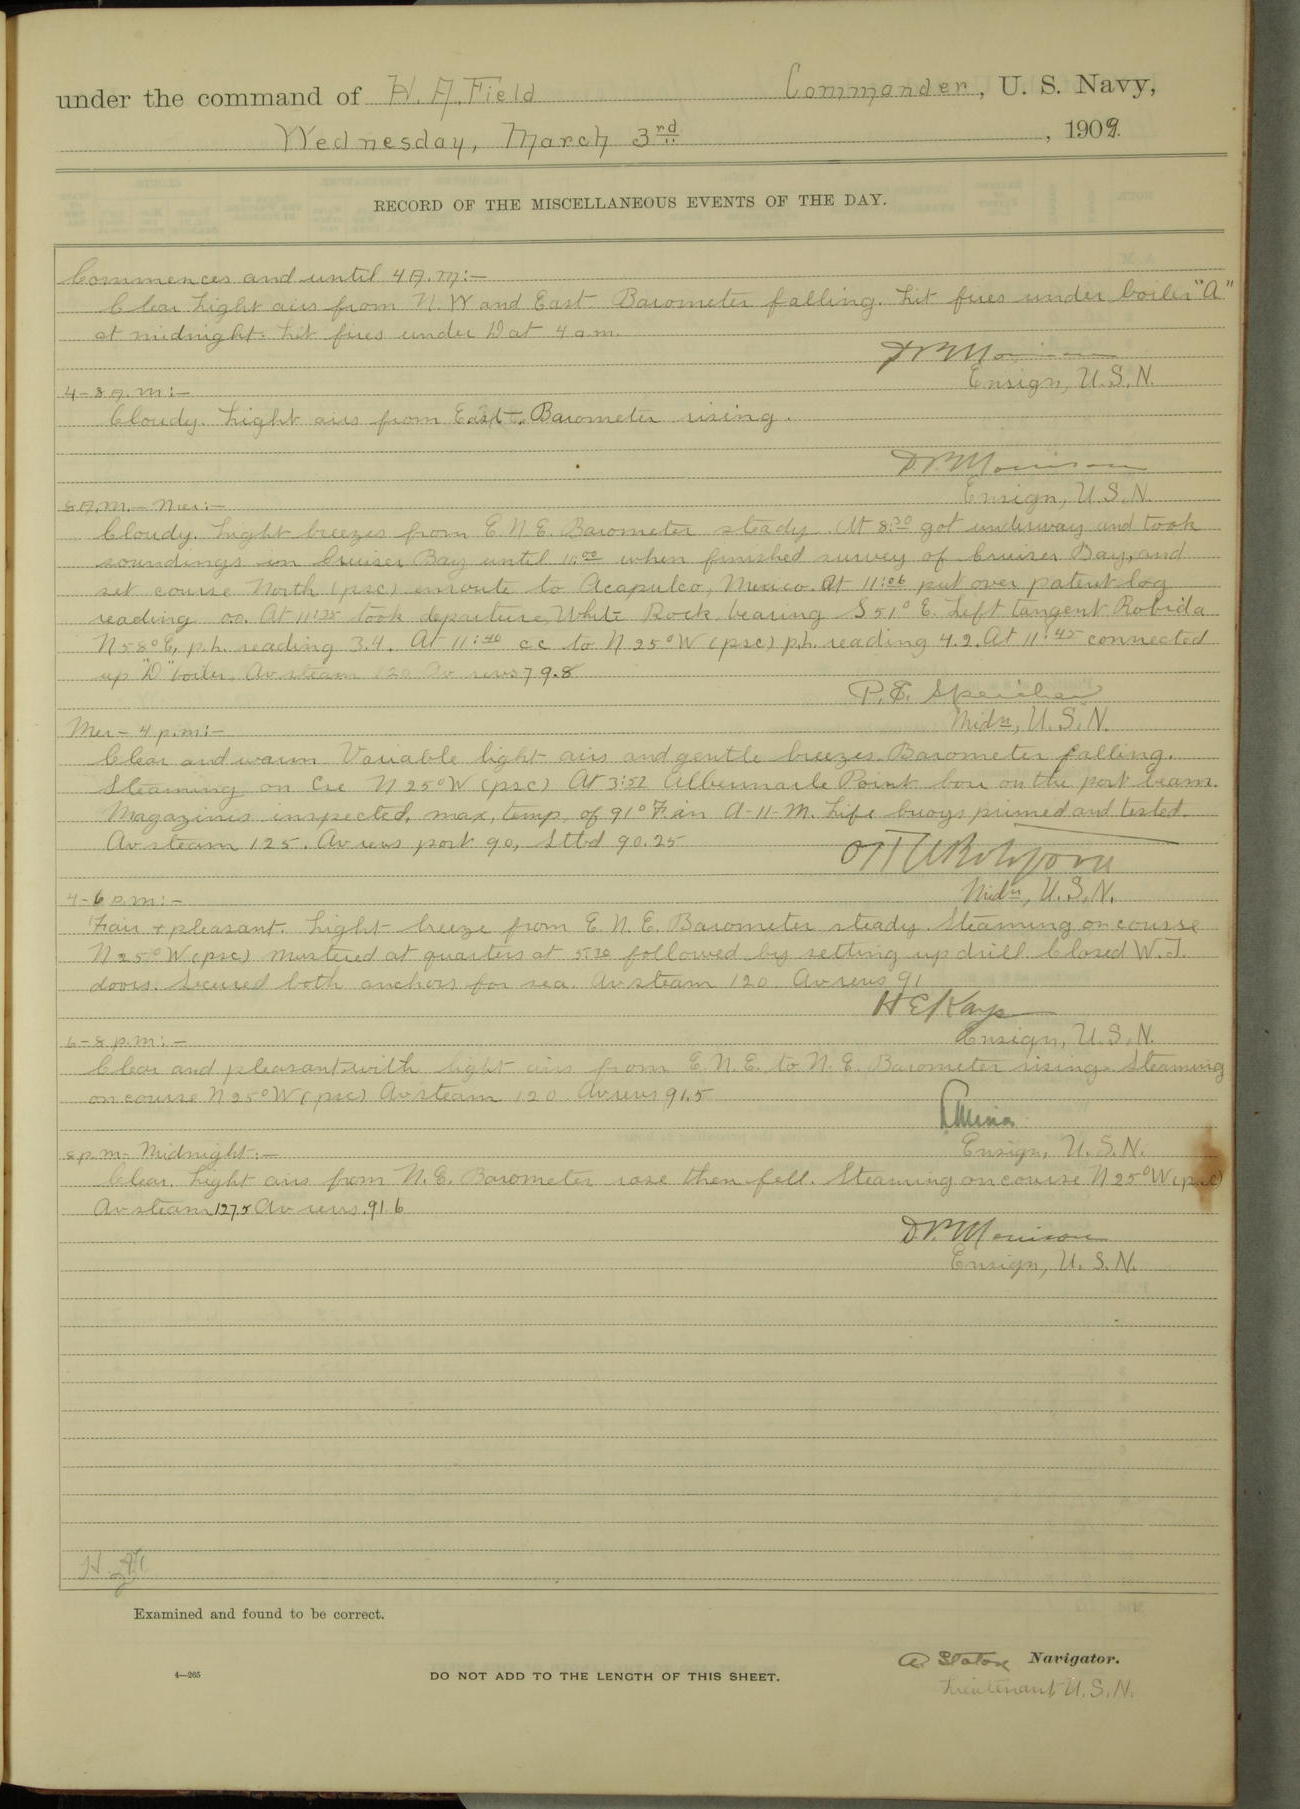 under the command of W. A. Field Commander, U. S. Navy,
Wednesday, March 3rd, 1909.
RECORD OF THE MISCELLANEOUS EVENTS OF THE DAY.
Commences and until 4 A.M:-
Clear Light airs from N. W and East Barometer falling. Lit fires under boiler "A"
at midnight. Lit fires under D at 4 a m.
Ensign, U.S.N.
4-8 A.M:-
Cloudy. Light airs from East. Barometer rising.
D.B. Morrison
Ensign, U.S.N.
8 A.M.- Mer:-
Cloudy. Light breezes from E N E. Barometer steady. At 8:30 got underway and took
soundings in Cruiser Bay until 10:00 when finished survey of Cruiser Bay, and
set course North (psc) enroute to Acapulco, Mexico. At 11:06 put over patent log
reading 00. At 11:35 took departure, White Rock bearing S 51° E. Left tangent Robida
N 58° E, p.h. reading 3.4. At 11:40 c c to N 25° W (psc) p.h. reading 4.2. At 11:45 connected
up "D" boiler. Av steam 120 Av revs 79.8
P. E. Speicher
Midn, U.S.N.
Mer - 4 p.m:-
Clear and warm Variable light airs and gentle breezes. Barometer falling.
Steaming on Cse N 25° W (psc) At 3:52 Albermarle Point bore on the port beam.
Magazines inspected, max, temp, of 91° F. in A-11-M. Life buoys primed and tested.
Av steam 125. Av revs port 90, Stbd 90.25
Midn, U.S.N.
4-6 p.m:-
Fair & pleasant. Light breeze from E. N. E. Barometer steady. Steaming on course
N 25° W (psc) Mustered at quarters at 5:30 followed by setting up drill. Closed W.T.
doors. Secured both anchors for sea. Av steam 120 Av revs 91
H E Kays
Ensign, U.S.N.
6-8 p.m:-
Clear and pleasant with light airs from E. N. E. to N. E. Barometer rising. Steaming
on course N 25° W (psc) Av steam 120 Av revs 91.5
Ensign, U.S.N.
8 p.m- Midnight:-
Clear. Light airs from N. E. Barometer rose then fell. Steaming on course N 25° W (psc)
Av steam 127.5 Av revs. 91.6
D.B. Morrison
Ensign, U.S.N.
Examined and found to be correct.
A. Staton Navigator.
4-265 DO NOT ADD TO THE LENGTH OF THIS SHEET.
Lieutenant U.S.N.